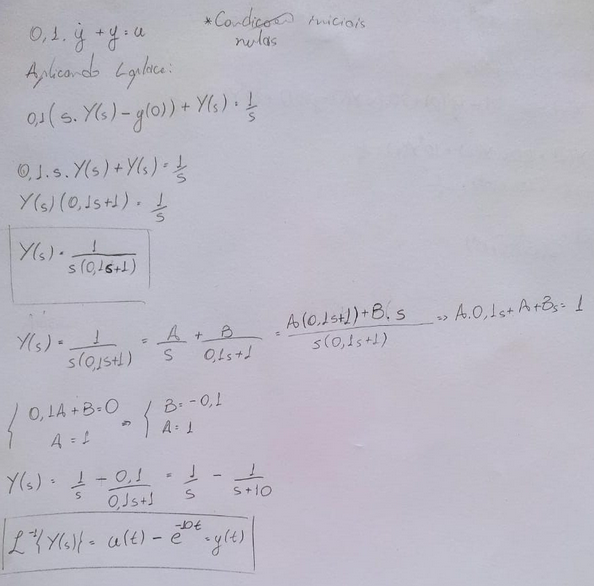 0,1. ẏ + y = u
*Condicoes iniciais
nulas
Aplicando Laplace:
0,1(s.Y(s) - y(0)) + Y(s) = 1/s
0,1.s.Y(s) + Y(s) = 1/s
Y(s)(0,1s+1) = 1/s
Y(s) = 1/(s(0,1s+1))
Y(s) = 1/(s(0,1s+1)) = A/s + B/(0,1s+1) = (A(0,1s+1)+B.s)/(s(0,1s+1)) => A.0,1s + A + Bs = 1
{ 0,1A + B = 0 => { B = -0,1
A = 1 A = 1
Y(s) = 1/s - 0,1/(0,1s+1) = 1/s - 1/(s+10)
L⁻¹{Y(s)} = u(t) - e^(-10t) = y(t)